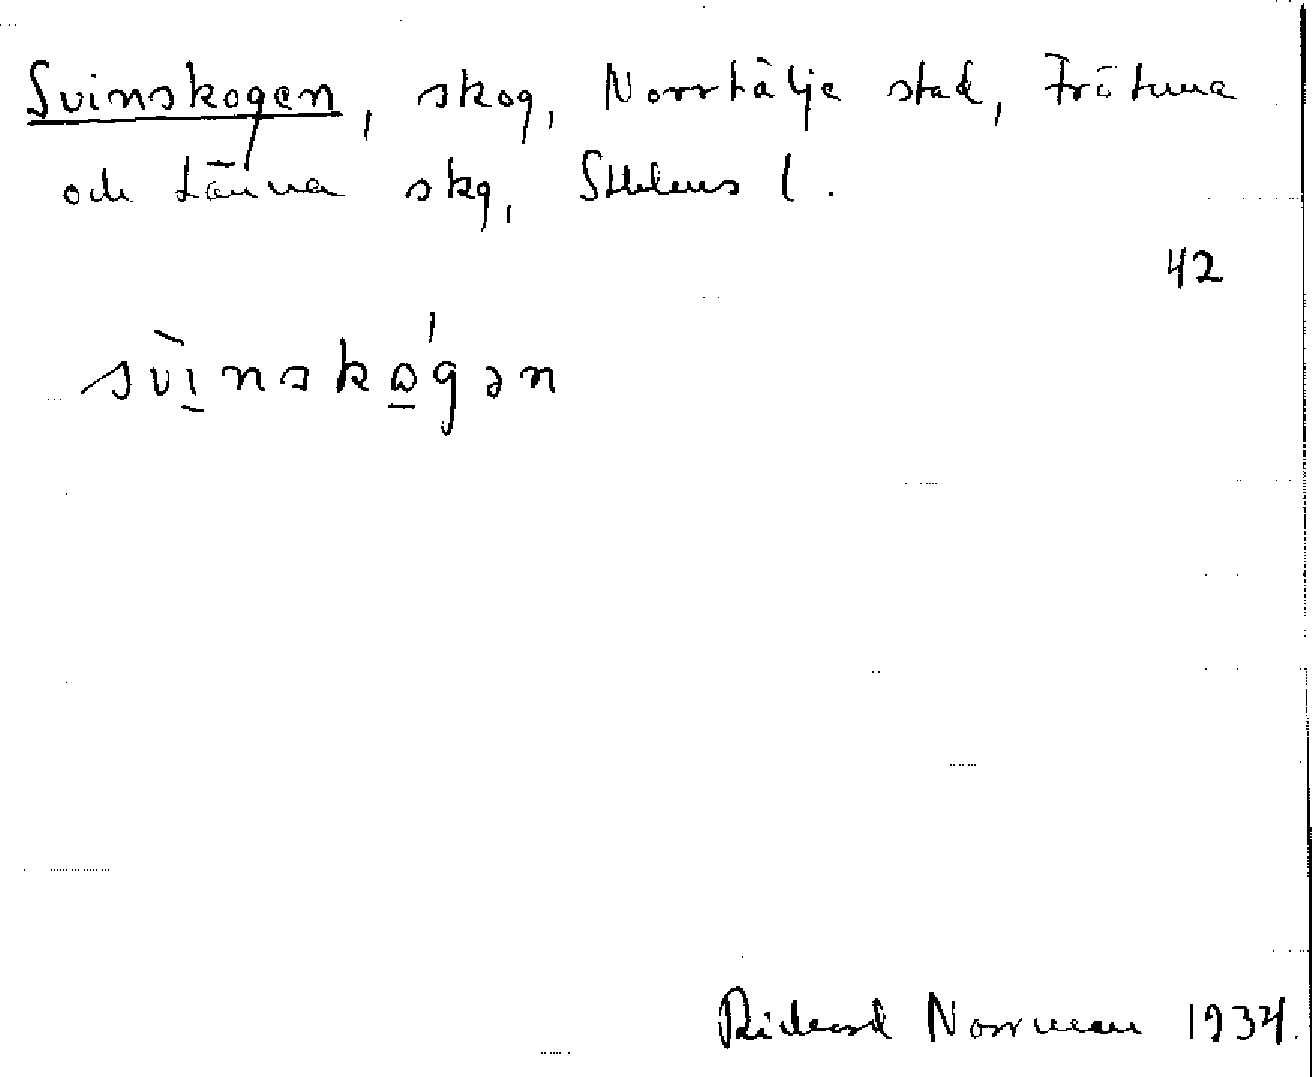 Svinskogen, skog, Norrtälje stad, Frötuna
och Länna skg, Sthlms l.
42
svinskogən
Rickard Norrman 1934.